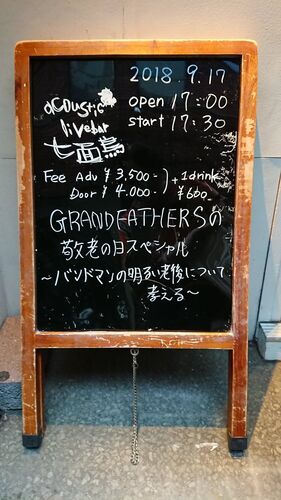 2018.9.17
open 17:00
start 17:30
acoustic
livebar
七面鳥
Fee Adv ¥3,500-
Door ¥4.000-
+1drink
¥600
GRANDFATHERSの
敬老の日スペシャル
~バンドマンの明るい老後について
考える~